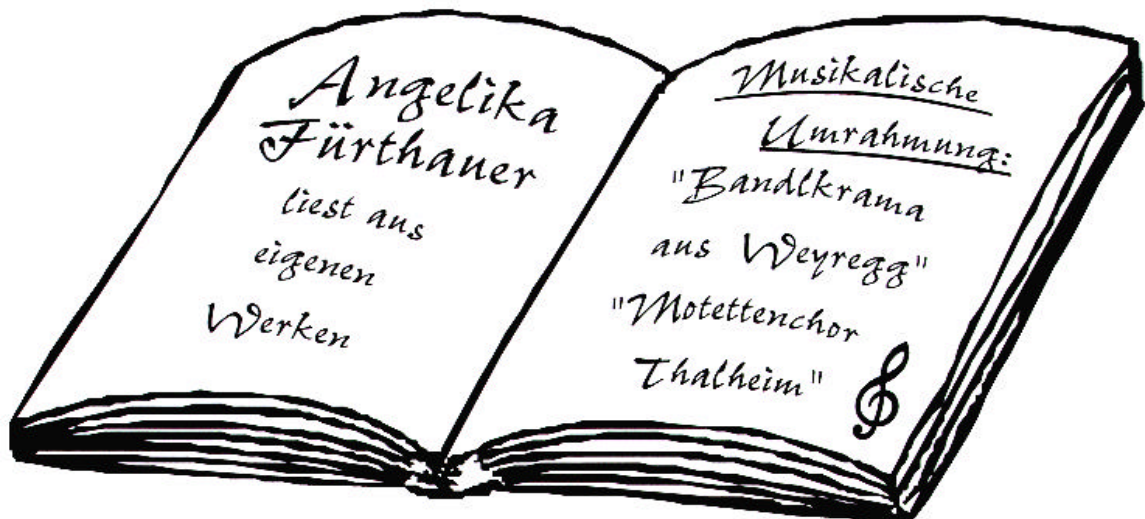 Angelika
Fürthauer
liest aus
eigenen
Werken
Musikalische
Umrahmung:
"Bandlkrama
aus Weyregg"
"Motettenchor
Thalheim"